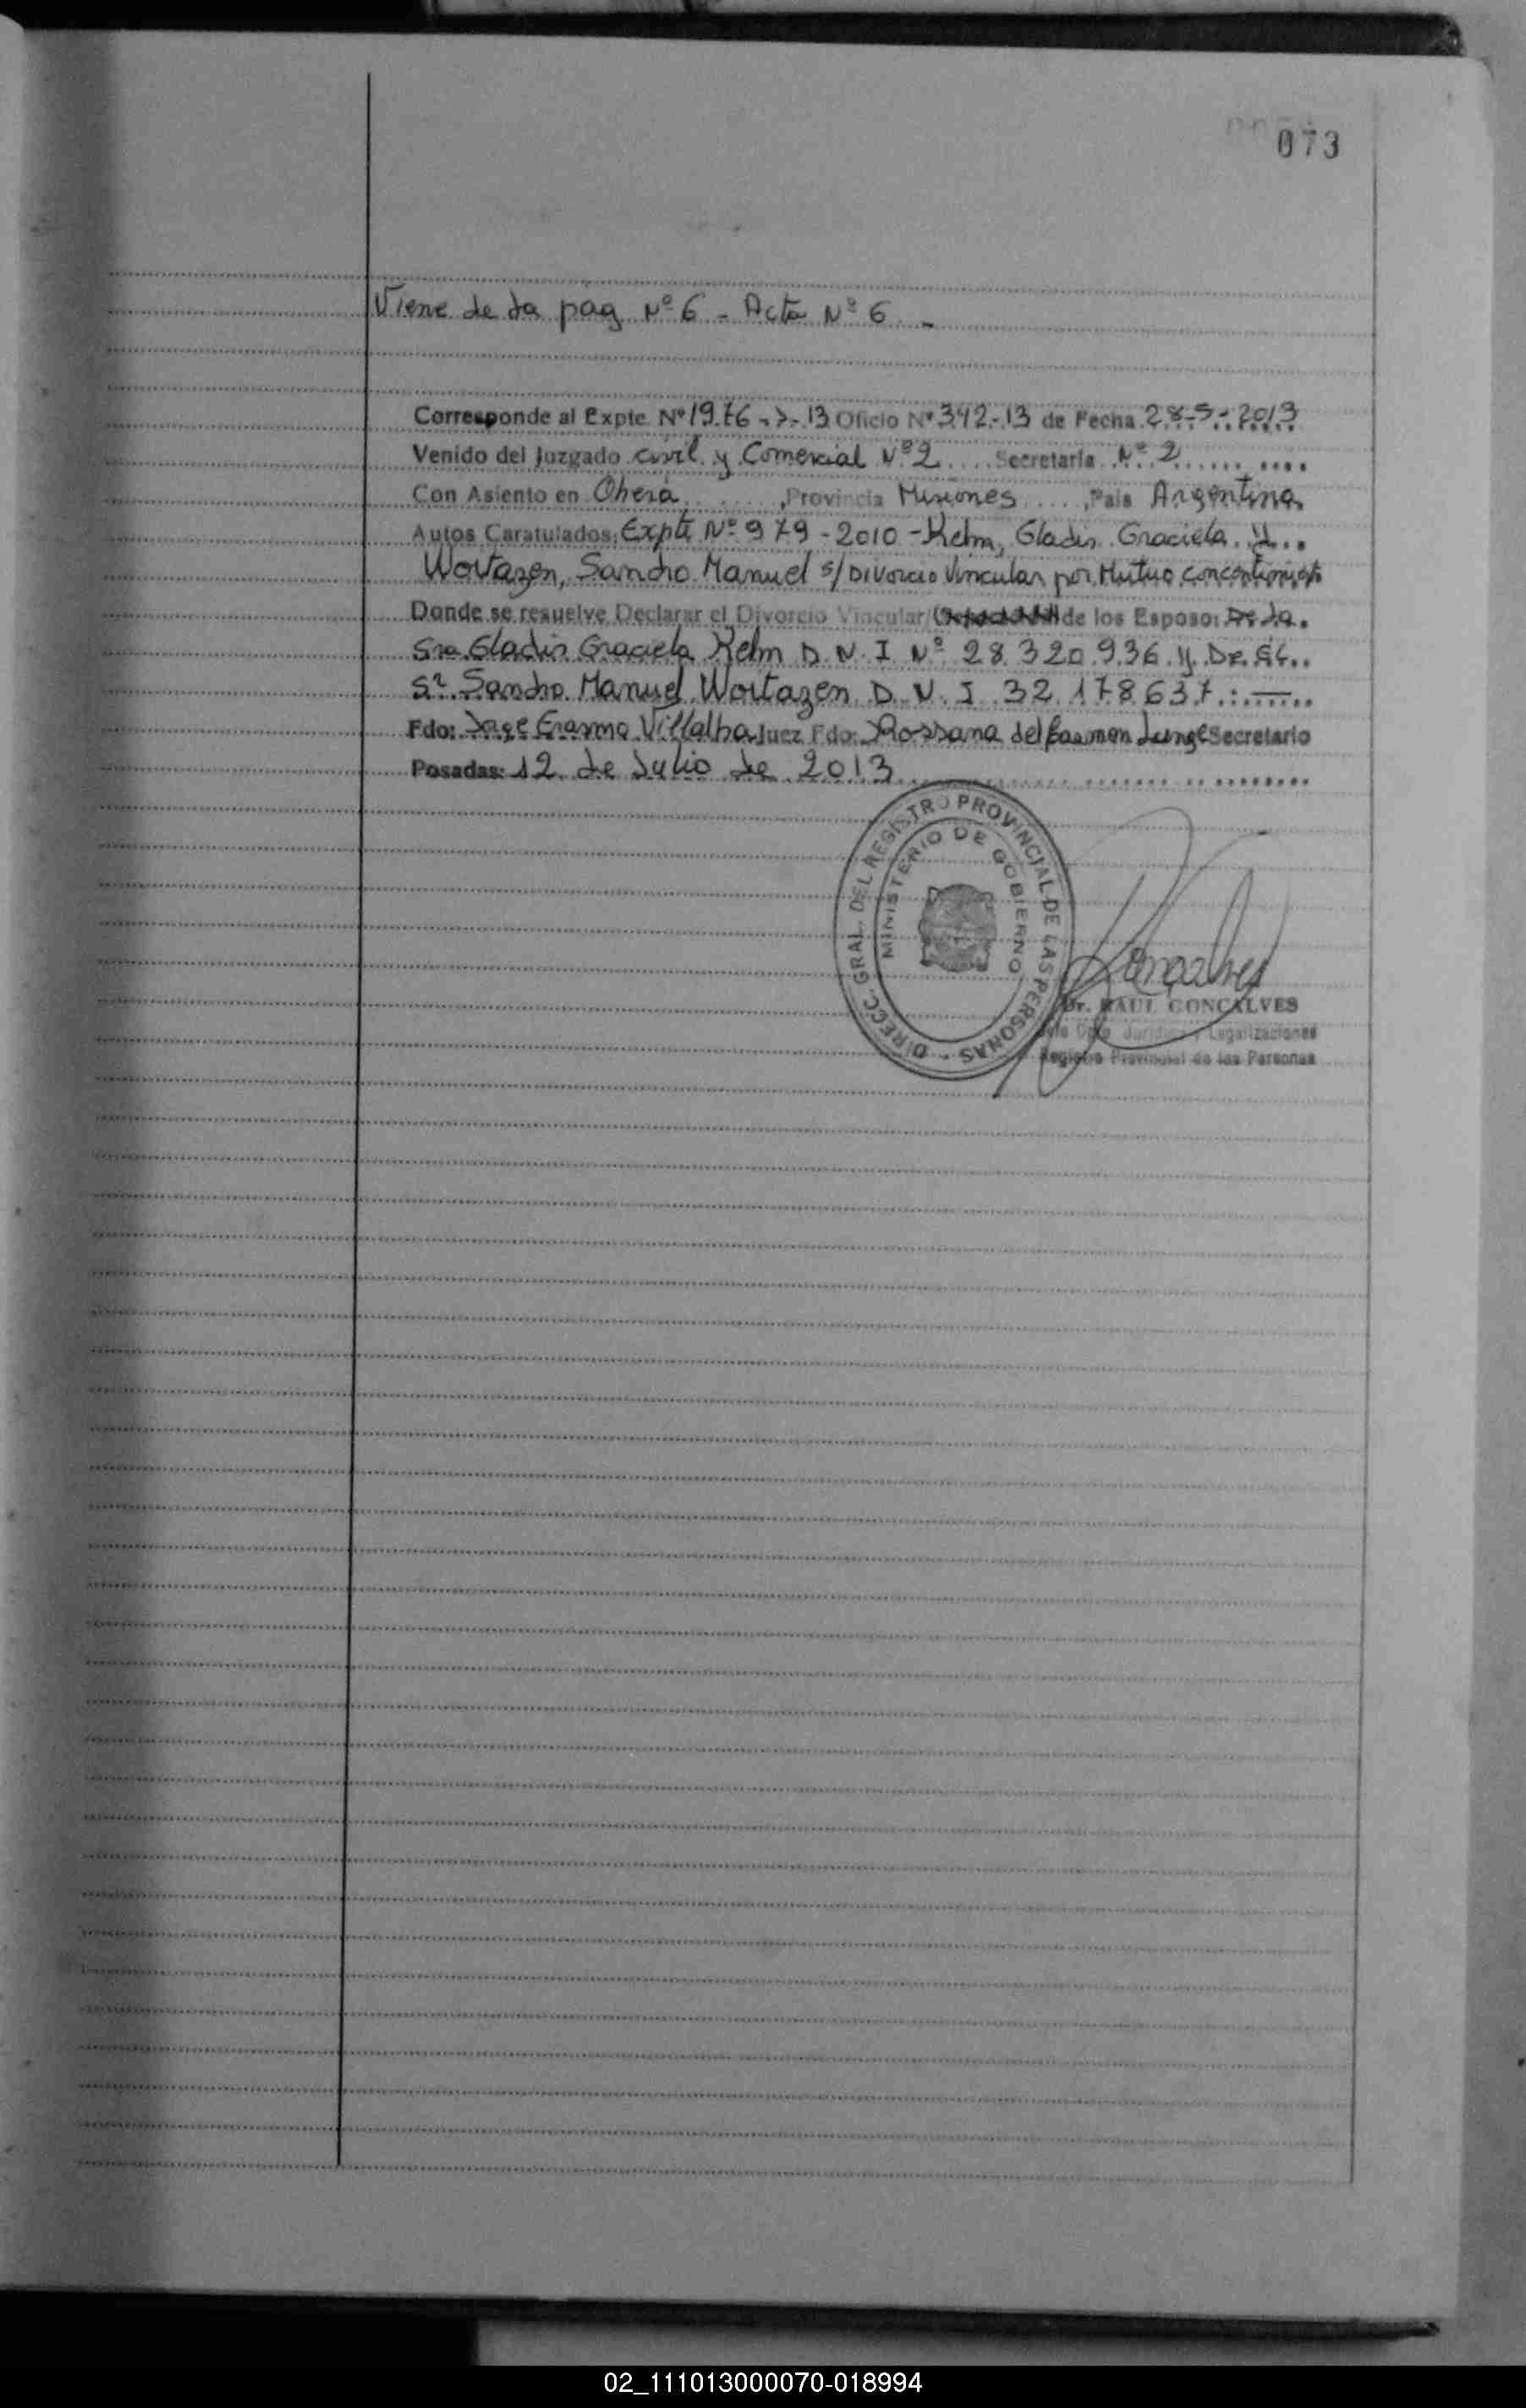 073
Viene de la pag Nº 6 - Acta Nº 6 -
Corresponde al Expte Nº 1976 - - 13 Oficio Nº 342-13 de Fecha 28-5-2013
Venido del Juzgado Civil y Comercial Nº 2 Secretaría Nº 2
Con Asiento en Obera, Provincia Misiones, País Argentina
Autos Caratulados: Expte Nº 979-2010 - Kelm, Gladis Graciela y
Wortagen, Sandro Manuel s/ Divorcio Vincular por Mutuo
Donde se resuelve Declarar el Divorcio Vincular/ de los Esposo: De la
Sra Gladis Graciela Kelm D.N.I Nº 28.320.936 y De el
Sr. Sandro Manuel Wortagen D.N.I 32.178.637.:
Fdo: Jose Erasmo Villalba Juez Fdo: Rossana del Carmen Lunge Secretario
Posadas: 12 de Julio de 2013
DIRECC. GRAL. DEL REGISTRO PROVINCIAL DE LAS PERSONAS -
MINISTERIO DE GOBIERNO
Goncalves
Dr. RAUL GONCALVES
Jefe Dpto. Legalizaciones
Registro Provincial de las Personas
02_111013000070-018994